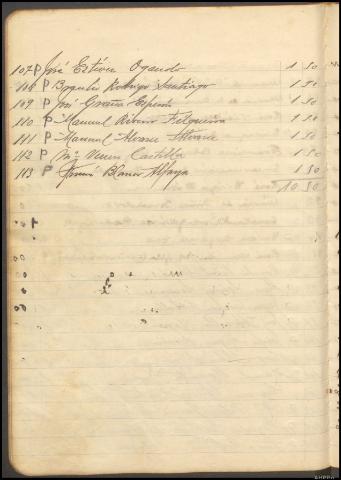 107 P José Estévez Ogando 1 50
108 P Rogelio Rodrigo Santiago 1 50
109 P José Graña Espiño 1 50
110 P Manuel Filgueira 1 50
111 P Manuel Alvarez 1 50
112 P Mª Castilla 1 50
113 P Blanco Alfaya 1 50
10 50